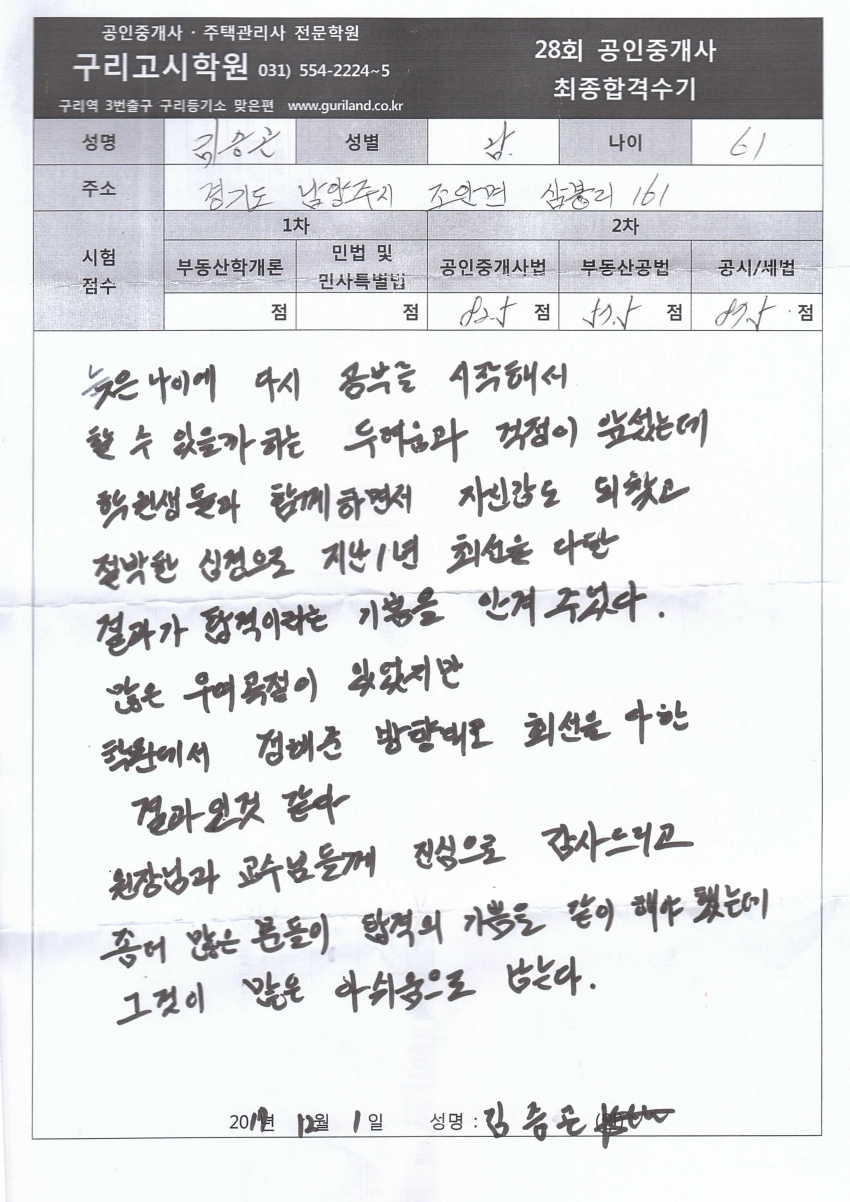 공인중개사 · 주택관리사 전문학원
구리고시학원 031) 554-2224~5
구리역 3번출구 구리등기소 맞은편 www.guriland.co.kr
28회 공인중개사
최종합격수기
성명 성별 남. 나이 61
주소 경기도 남양주시 조안면 삼봉리 161
시험 점수
1차 2차
부동산학개론 민법 및 민사특별법 공인중개사법 부동산공법 공시/세법
점 점 82.5 점 57.5 점 87.5 점
늦은 나이에 다시 공부를 시작해서
할 수 있을까 하는 두려움과 걱정이 앞섰는데
학원생들과 함께 하면서 자신감도 되찾고
절박한 심정으로 지난 1년 최선을 다한
결과가 합격이라는 기쁨을 안겨 주었다.
많은 우여곡절이 있었지만
학원에서 정해준 방향대로 최선을 다한
결과인것 같다
원장님과 교수님들께 진심으로 감사드리고
좀더 많은 분들이 합격의 기쁨을 같이 해야 했는데
그것이 많은 아쉬움으로 남는다.
2017년 12월 1일 성명 : 김